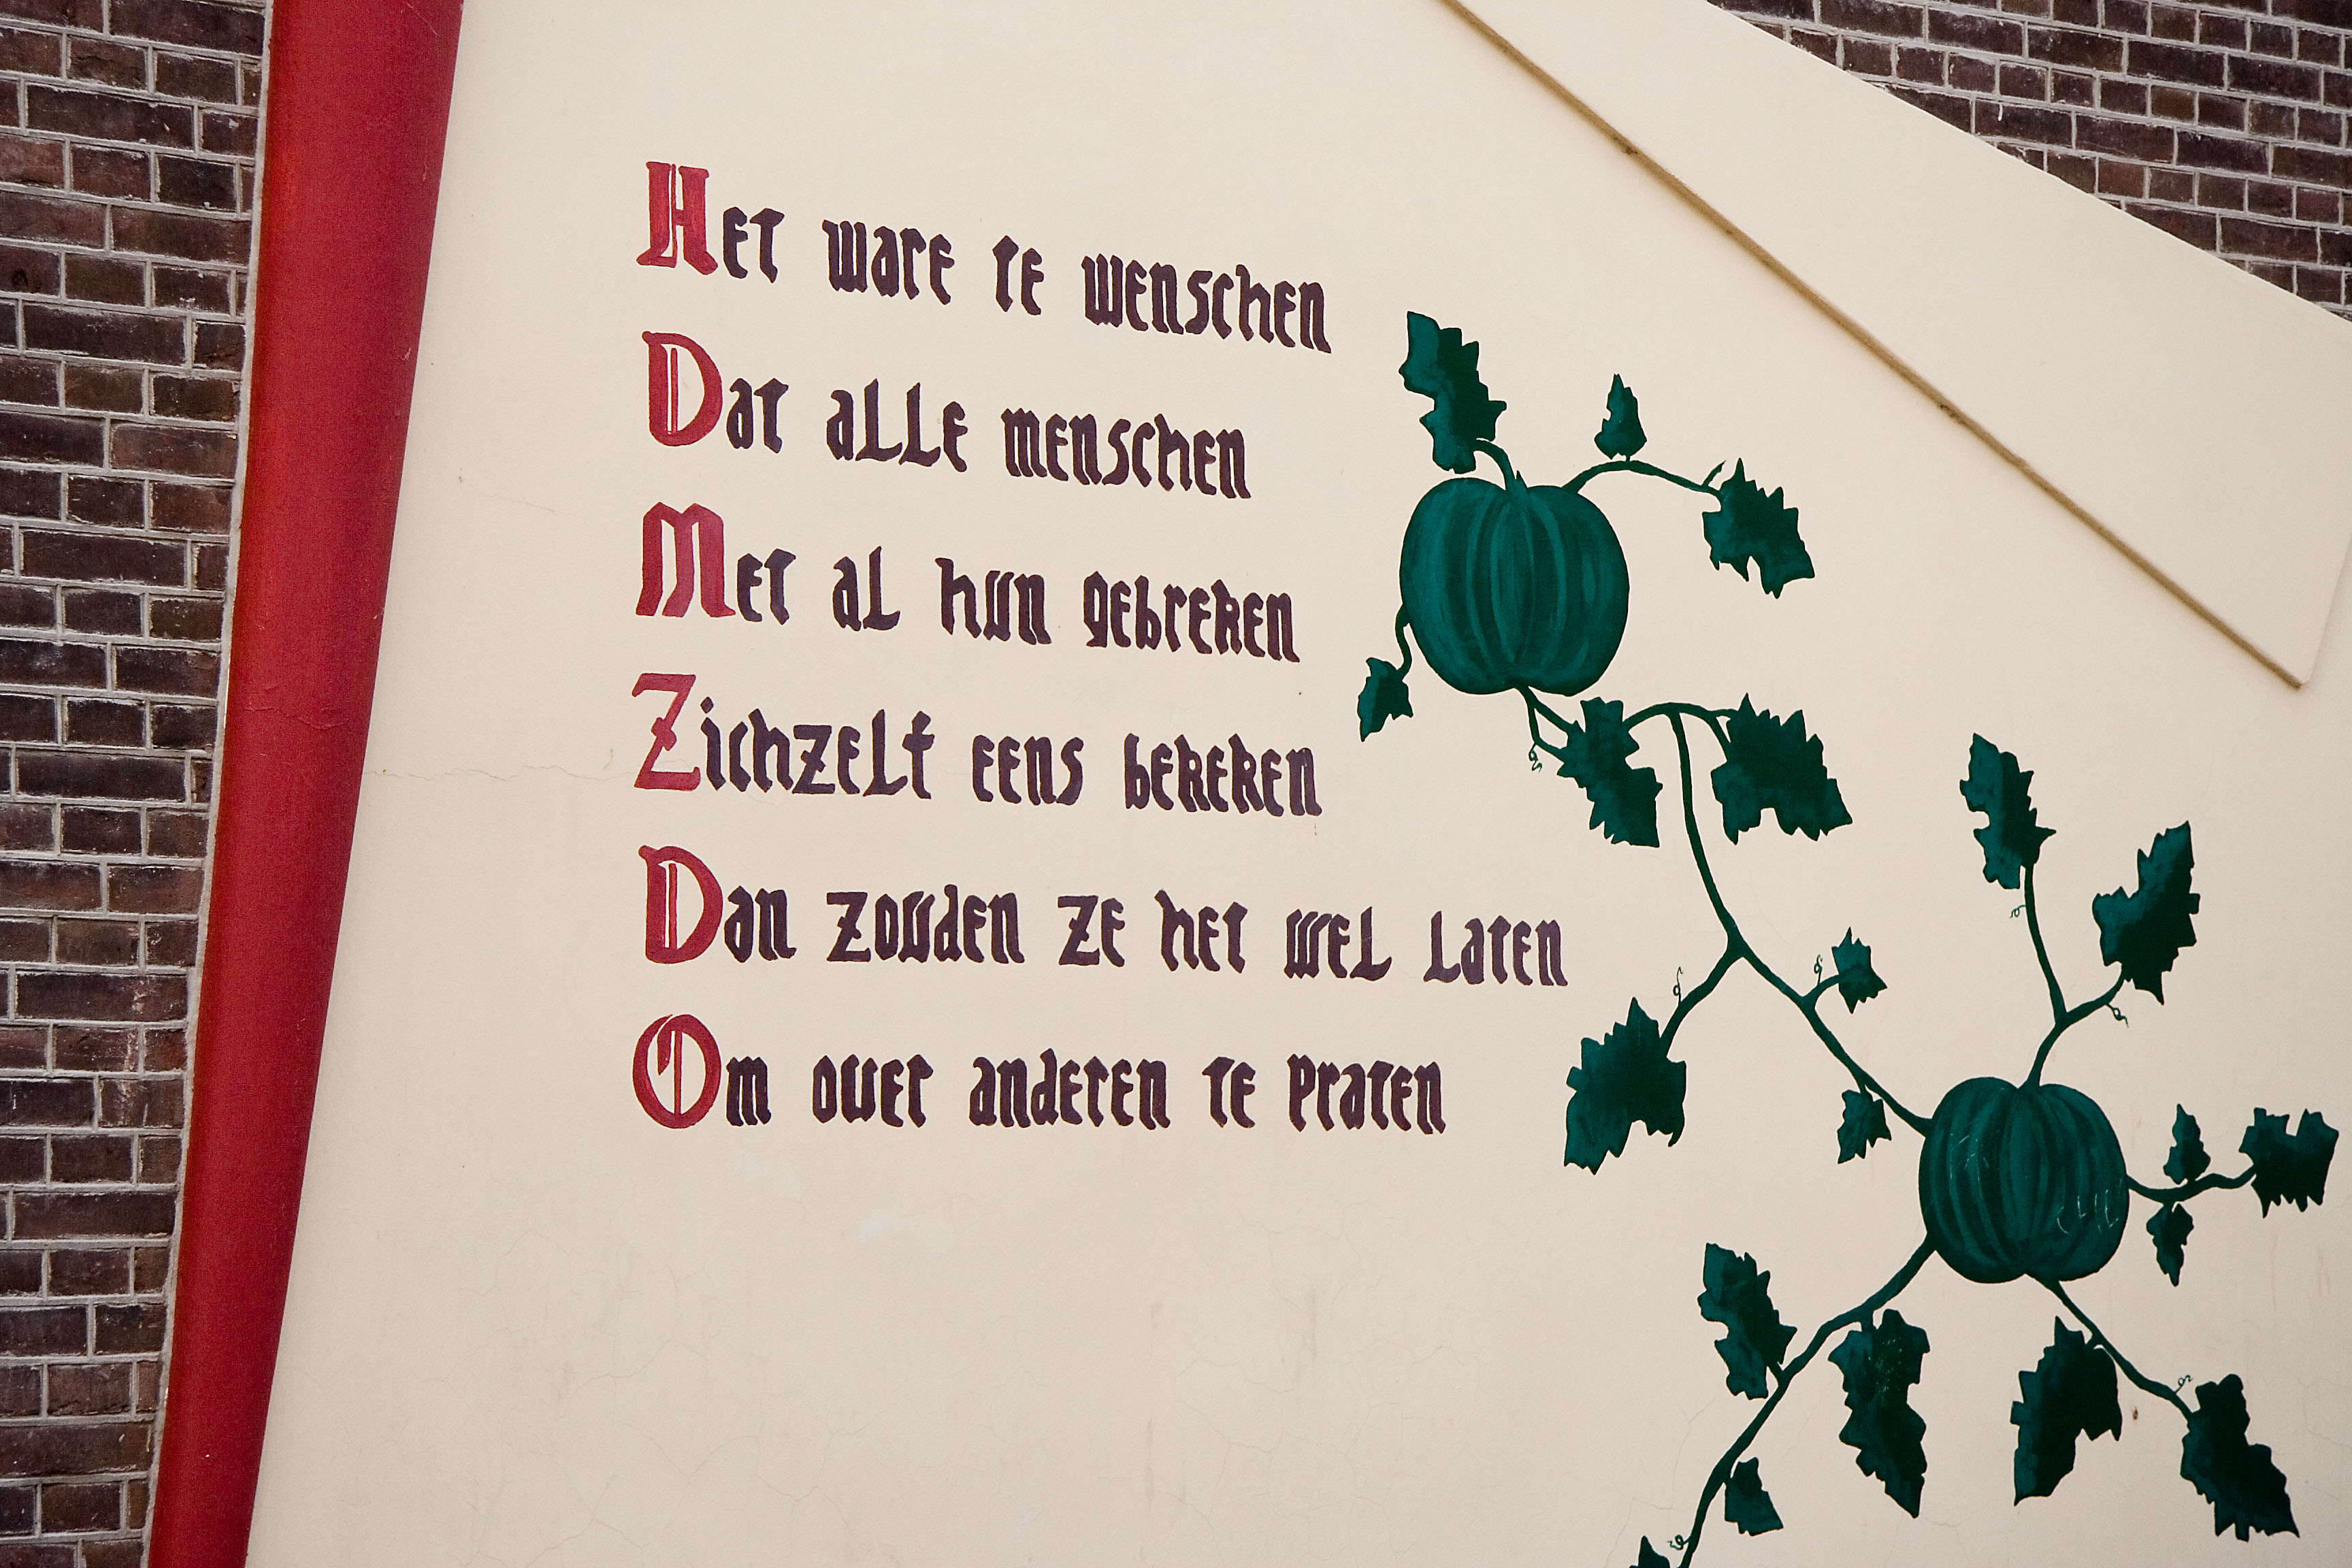 Het ware te wenschen
Dat alle menschen
Met al hun gebreken
Zichzelf eens bekeken
Dan zouden ze het wel laten
Om over anderen te praten